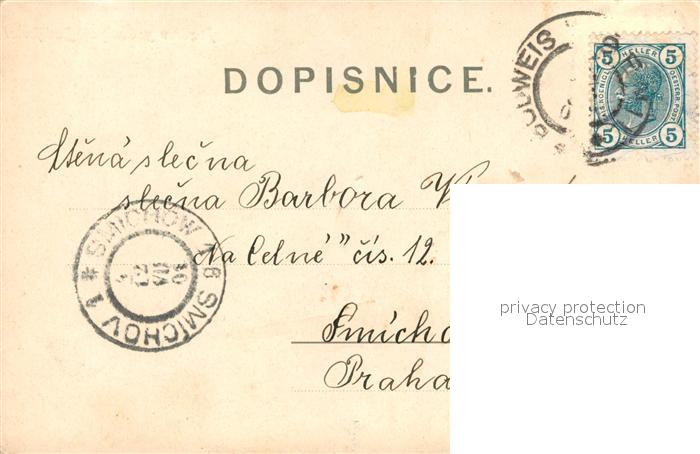 DOPISNICE.
BUDWEIS
5 HELLER 5
5 HELLER 5
Ctěná slečna
slečna Barbora
„Na Celné" čís. 12.
SMICHOW 1 * 8 SMÍCHOV 1 *
Smícho
Praha
privacy protection
Datenschutz